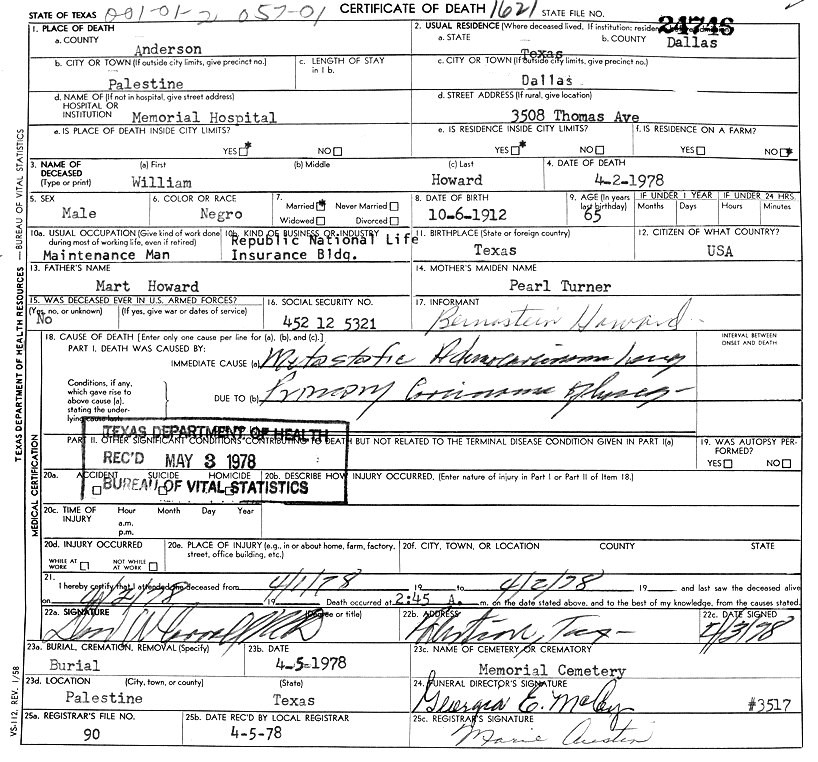 STATE OF TEXAS 001-01-2 057-01 CERTIFICATE OF DEATH 1621 STATE FILE NO. 24746
1. PLACE OF DEATH
a. COUNTY Anderson
2. USUAL RESIDENCE (Where deceased lived. If institution:
a. STATE Texas b. COUNTY Dallas
b. CITY OR TOWN (If outside city limits, give precinct no.) Palestine
c. LENGTH OF STAY in 1 b.
c. CITY OR TOWN (If outside city limits, give precinct no.) Dallas
d. NAME OF (If not in hospital, give street address) HOSPITAL OR INSTITUTION Memorial Hospital
d. STREET ADDRESS (If rural, give location) 3508 Thomas Ave
e. IS PLACE OF DEATH INSIDE CITY LIMITS? YES * NO
e. IS RESIDENCE INSIDE CITY LIMITS? YES * NO
f. IS RESIDENCE ON A FARM? YES NO *
3. NAME OF DECEASED (Type or print) (a) First William (b) Middle (c) Last Howard
4. DATE OF DEATH 4-2-1978
5. SEX Male
6. COLOR OR RACE Negro
7. Married * Never Married Widowed Divorced
8. DATE OF BIRTH 10-6-1912
9. AGE (In years last birthday) 65 IF UNDER 1 YEAR Months Days IF UNDER 24 HRS. Hours Minutes
10a. USUAL OCCUPATION (Give kind of work done during most of working life, even if retired) Maintenance Man
10b. KIND OF BUSINESS OR INDUSTRY Republic National Life Insurance Bldg.
11. BIRTHPLACE (State or foreign country) Texas
12. CITIZEN OF WHAT COUNTRY? USA
13. FATHER'S NAME Mart Howard
14. MOTHER'S MAIDEN NAME Pearl Turner
15. WAS DECEASED EVER IN U.S. ARMED FORCES? (Yes, no, or unknown) No (If yes, give war or dates of service)
16. SOCIAL SECURITY NO. 452 12 5321
17. INFORMANT Bernostein Howard
18. CAUSE OF DEATH [Enter only one cause per line for (a), (b), and (c).] INTERVAL BETWEEN ONSET AND DEATH
PART I. DEATH WAS CAUSED BY:
IMMEDIATE CAUSE (a) Metastatic Adenocarcinoma Lung
Conditions, if any, which gave rise to above cause (a), stating the underlying cause last.
DUE TO (b) Primary Carcinoma
TEXAS DEPARTMENT OF HEALTH
REC'D MAY 3 1978
BUREAU OF VITAL STATISTICS
PART II. OTHER SIGNIFICANT CONDITIONS CONTRIBUTING TO DEATH BUT NOT RELATED TO THE TERMINAL DISEASE CONDITION GIVEN IN PART I(a)
19. WAS AUTOPSY PERFORMED? YES NO
20a. ACCIDENT SUICIDE HOMICIDE
20b. DESCRIBE HOW INJURY OCCURRED. (Enter nature of injury in Part I or Part II of Item 18.)
20c. TIME OF INJURY Hour a.m. p.m. Month Day Year
20d. INJURY OCCURRED WHILE AT WORK NOT WHILE AT WORK
20e. PLACE OF INJURY (e.g., in or about home, farm, factory, street, office building, etc.)
20f. CITY, TOWN, OR LOCATION COUNTY STATE
21. I hereby certify that I attended the deceased from 4/1/78 19 to 4/2/78 19 and last saw the deceased alive
on 4/2/78 19 Death occurred at 2:45 A. m. on the date stated above, and to the best of my knowledge, from the causes stated.
22a. SIGNATURE (Degree or title)
22b. ADDRESS Palestine, Tex
22c. DATE SIGNED 4/3/78
23a. BURIAL, CREMATION, REMOVAL (Specify) Burial
23b. DATE 4-5-1978
23c. NAME OF CEMETERY OR CREMATORY Memorial Cemetery
23d. LOCATION (City, town, or county) Palestine (State) Texas
24. FUNERAL DIRECTOR'S SIGNATURE Georgia E. #3517
25a. REGISTRAR'S FILE NO. 90
25b. DATE REC'D BY LOCAL REGISTRAR 4-5-78
25c. REGISTRAR'S SIGNATURE Marie Austin
TEXAS DEPARTMENT OF HEALTH RESOURCES — BUREAU OF VITAL STATISTICS
MEDICAL CERTIFICATION
VS-112, REV. 1/58